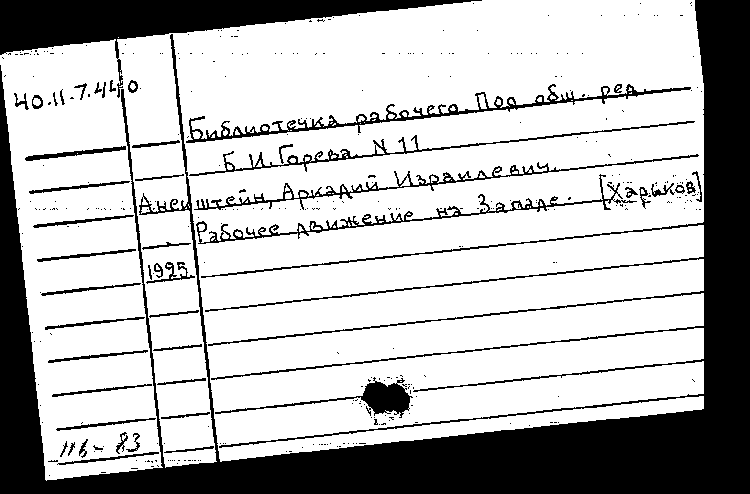 40.11.7.440
Библиотечка рабочего. Под общ. ред.
Б.И. Горева. N 11
Анекштейн, Аркадий Израилевич.
Рабочее движение на Западе. [Харьков]
1925.
116-83